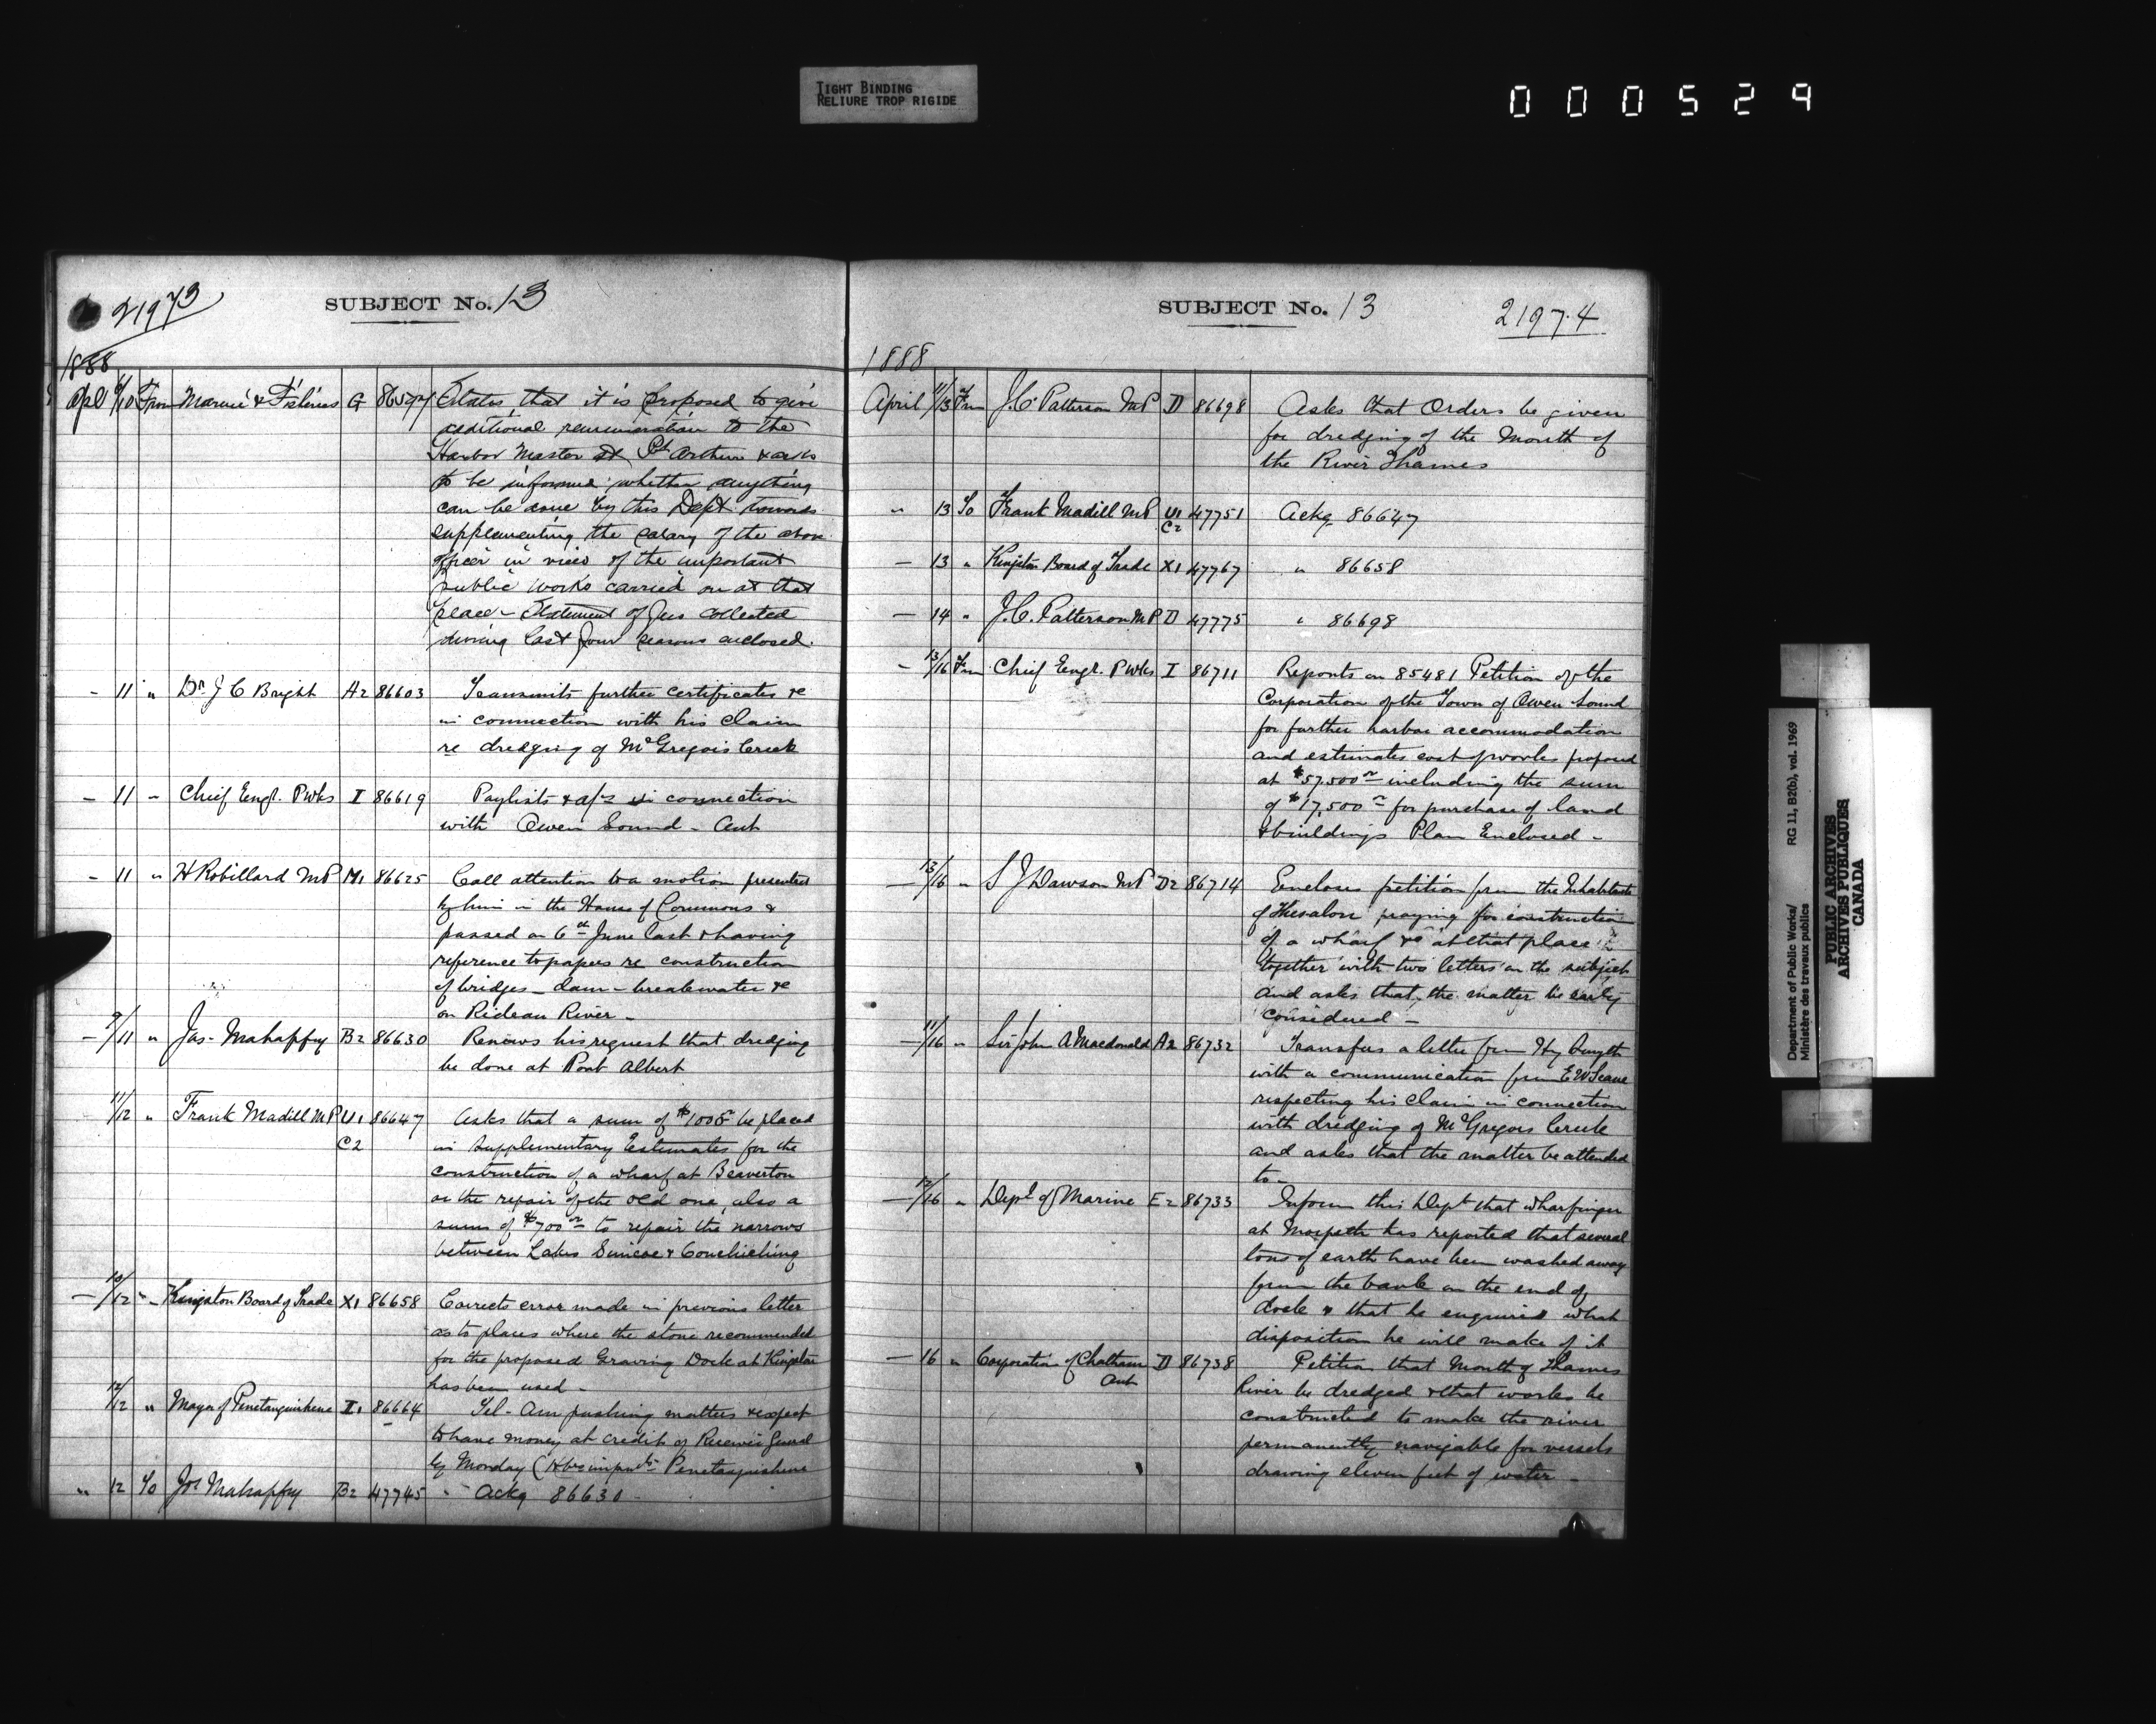 TIGHT BINDING
RELIURE TROP RIGIDE
000529
21973
SUBJECT No. 13
1888
Apl 9/10 From Marine & Fisheries G 86597 States that it is proposed to give
additional remuneration to the
Harbor Master at Pt Arthur & asks
to be informed whether anything
can be done by this Dept towards
supplementing the salary of the above
officer in view of the important
public works carried on at that
place - Statement of fees collected
during last four seasons enclosed.
- 11 " Dr J C Bright A2 86603 Transmits further certificates &c
in connection with his claim
re dredging of McGregors Creek
- 11 " Chief Engr. P Wks I 86619 Paylists & a/cs in connection
with Owen Sound - Ont
- 11 " H Robillard MP M1 86625 Call attention to a motion presented
by him in the House of Commons &
passed on 6th June last & having
reference to papers re construction
of bridges - dam - breakwater &c
on Rideau River -
- 9/11 " Jas. Mahaffy B2 86630 Renews his request that dredging
be done at Port Albert
11/12 " Frank Madill MP U1 86647 Asks that a sum of be placed
C2 in Supplementary Estimates for the
construction of a wharf at Beaverton
or the repair of the old one, also a
sum of $700 to repair the narrows
between Lakes Simcoe & Couchiching
- 10/12 " Kingston Board of Trade X1 86658 Corrects error made in previous letter
as to places where the stone recommended
for the proposed Graving Dock at Kingston
has been used -
12/12 " Mayor of Penetanguishene I1 86664 Tel - Am pushing matters & expect
to have money at credit of Receiver General
by Monday ( Penetanguishene
" 12 To Jos Mahaffy B2 47745 " Ackg 86630 -
SUBJECT No. 13
21974
1888
April 11/13 Frm J.C. Patterson MP D 86698 Asks that Orders be given
for dredging of the Mouth of
the River Thames
" 13 To Frank Madill MP U1 47751 Ackg 86647
C2
- 13 " Kingston Board of Trade X1 47767 " 86658
- 14 " J.C. Patterson MP D 47775 " 86698
- 13/16 Frm Chief Engr. P Wks I 86711 Reports on 85481 Petition of the
Corporation of the Town of Owen Sound
for further harbor accommodation
and estimates cost of works proposed
at $57,500 including the sum
of $17,500 for purchase of land
& buildings Plan Enclosed -
- 13/16 " S J Dawson MP D2 86714 Encloses petition from the Inhabitants
of Thessalon praying for construction
of a wharf &c at that place
together with two letters on the subject
and asks that the matter be early
considered -
- 11/16 " Sir John A Macdonald A2 86732 Transfers a letter from Hy Smyth
with a communication from E W
respecting his claim in connection
with dredging of McGregors Creek
and asks that the matter be attended
to -
- 12/16 " Dept of Marine E2 86733 Inform this Dept that wharfinger
at Morpeth has reported that several
tons of earth have been washed away
from the bank on the end of
dock & that he enquires what
disposition he will make of it
- 16 " Corporation of Chatham D 86738 Petition that Mouth of Thames
Ont River be dredged & that works be
constructed to make the river
permanently navigable for vessels
drawing eleven feet of water -
Department of Public Works/ RG 11, B2(b), vol. 1969
Ministère des travaux publics
PUBLIC ARCHIVES
ARCHIVES PUBLIQUES
CANADA